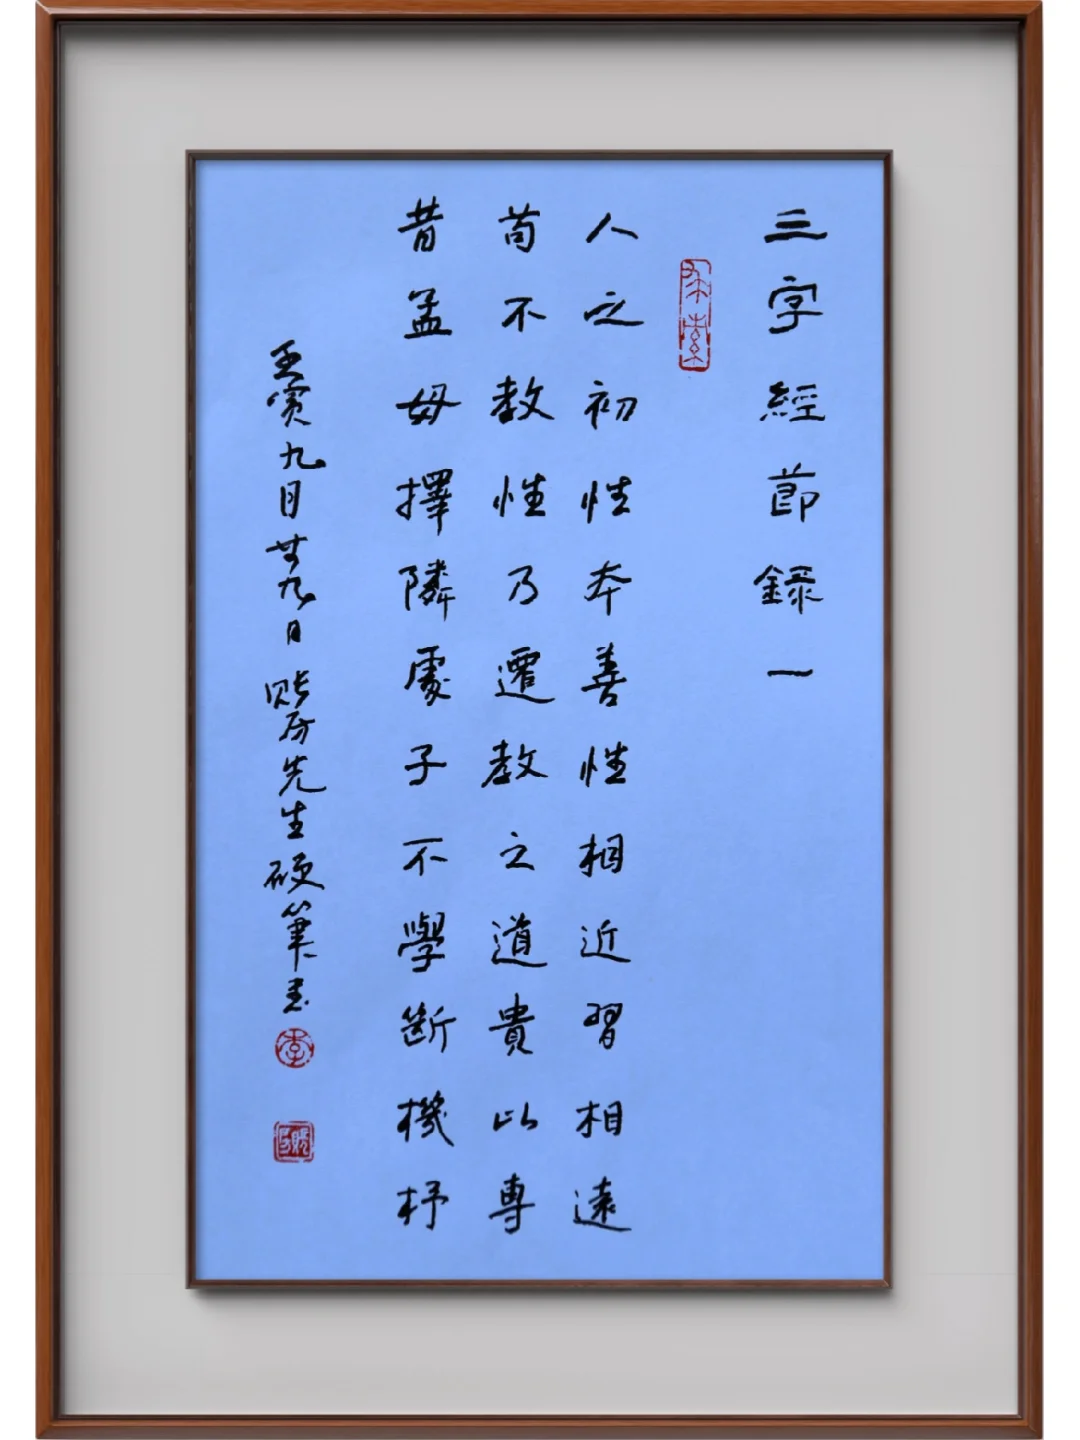 三字經節錄一
人之初性本善性相近習相遠
苟不教性乃遷教之道貴以專
昔孟母擇隣處子不學斷機杼
壬寅九月廿九日賬房先生硬筆書